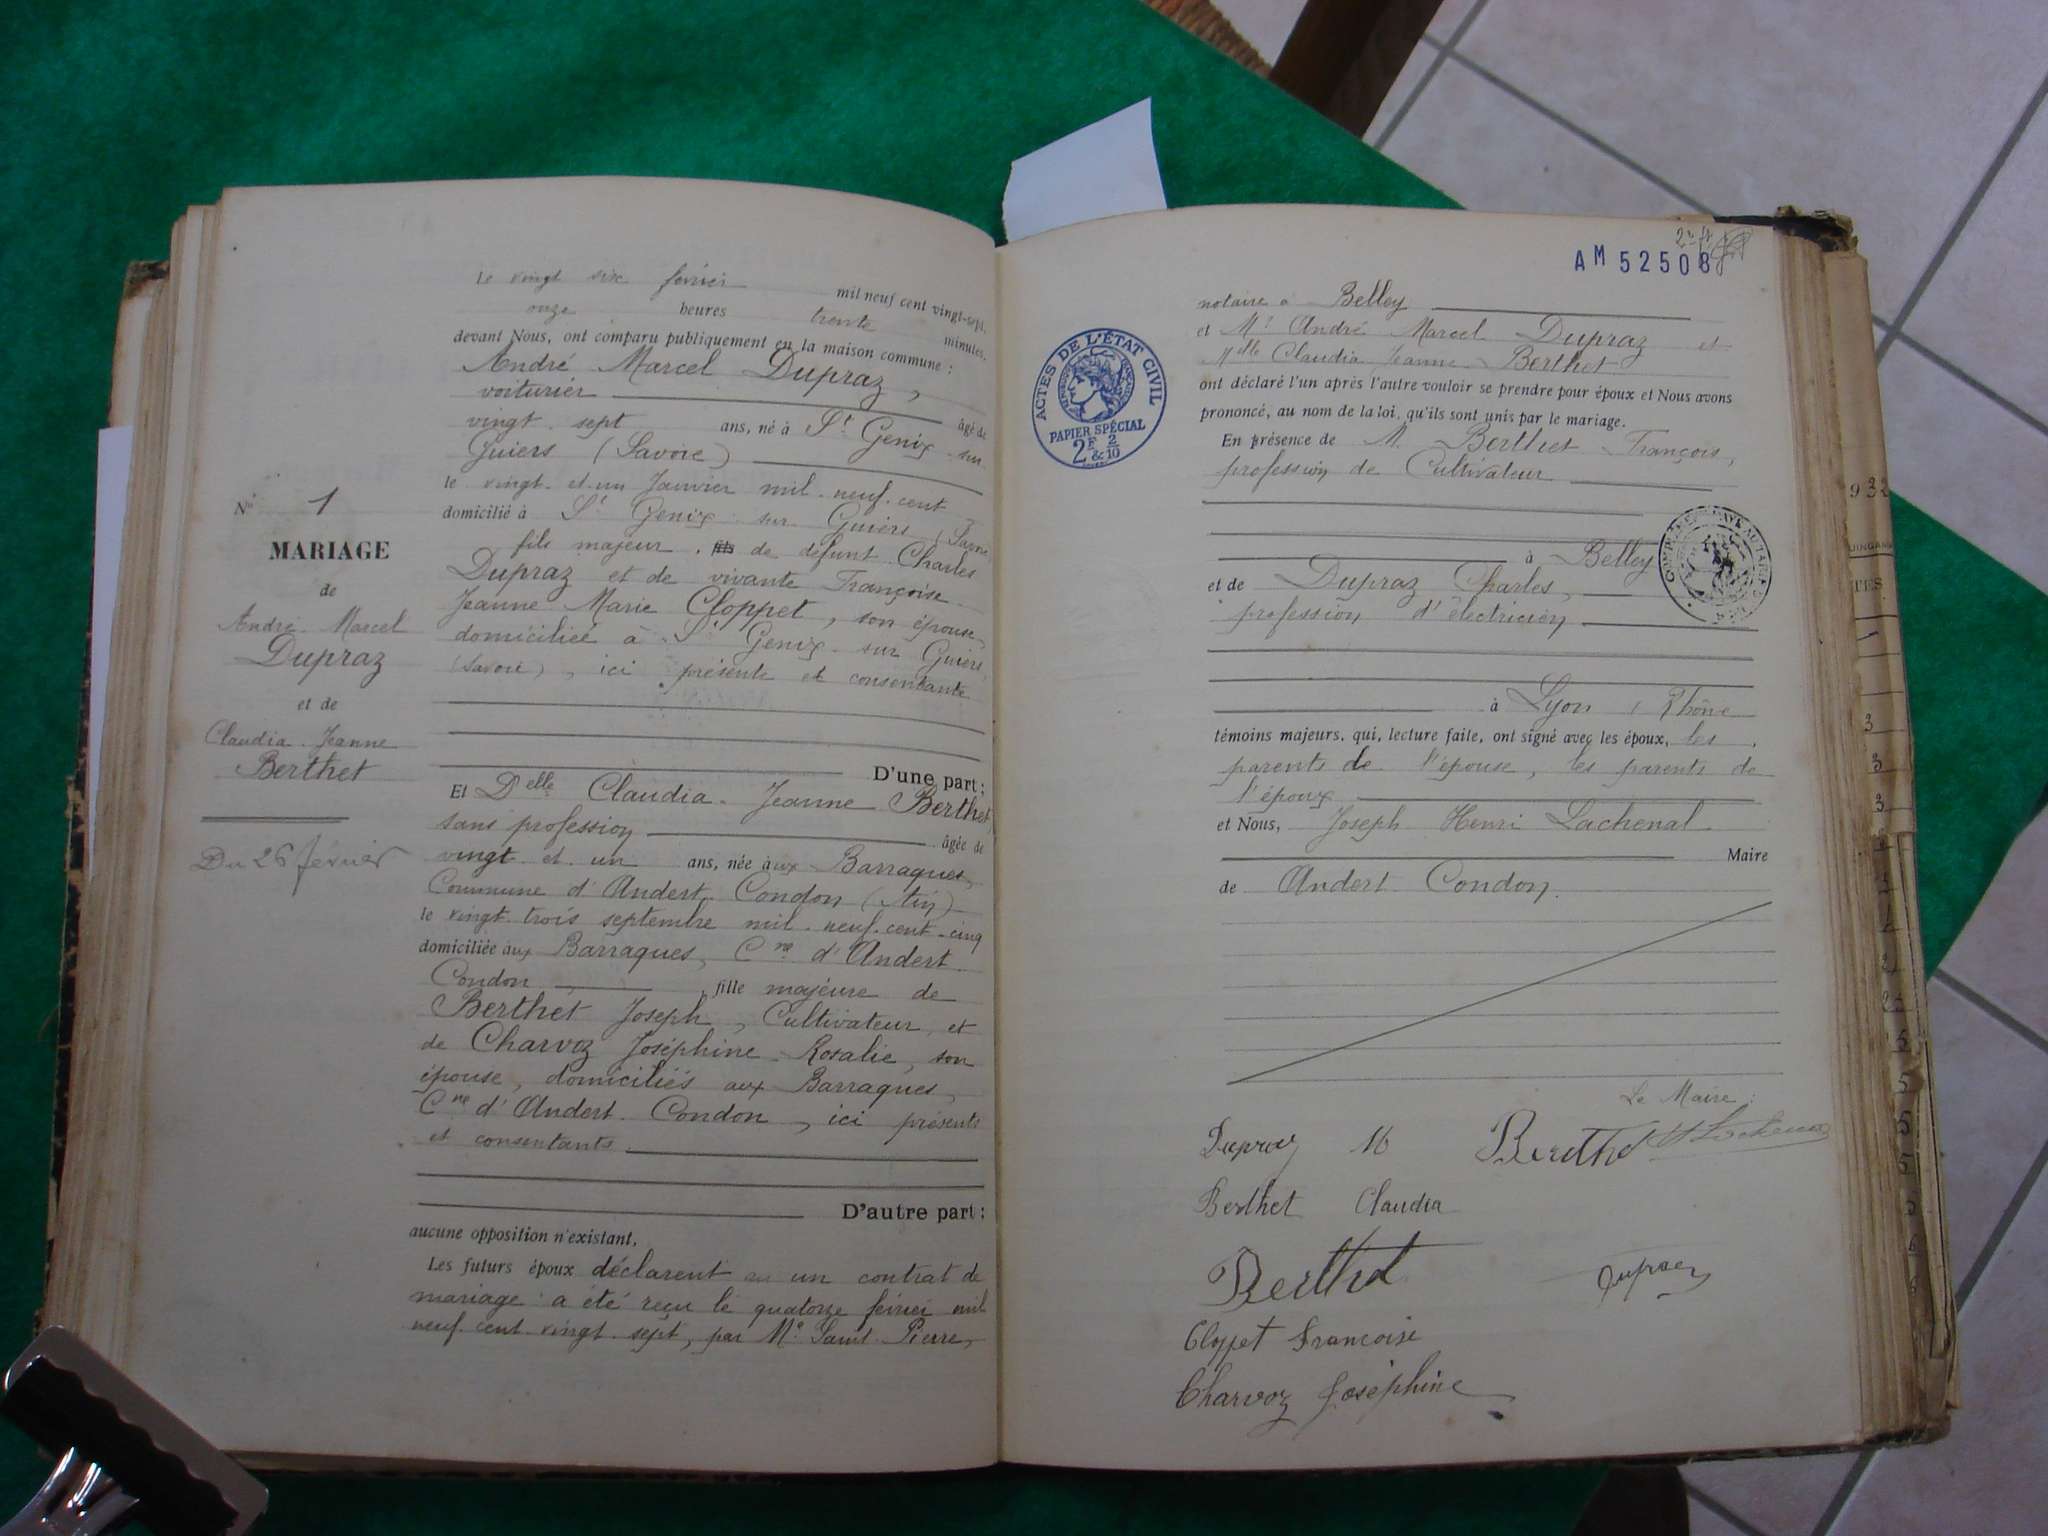 Le vingt six février mil neuf cent vingt-sept,
onze heures trente minutes,
devant Nous, ont comparu publiquement en la maison commune :
André Marcel Dupraz,
voiturier âgé de
vingt sept ans, né à St Genix sur
Guiers (Savoie)
le vingt et un Janvier mil neuf cent
domicilié à St Genix sur Guiers (Savoie
fils majeur de défunt Charles
Dupraz et de vivante Françoise
Jeanne Marie Cloppet, son épouse
domiciliée à St Genix sur Guiers
(Savoie), ici présente et consentante
D'une part ;
Et Delle Claudia Jeanne Berthet,
sans profession âgée de
vingt et un ans, née aux Barraques,
Commune d'Andert Condon (Ain)
le vingt trois septembre mil neuf cent cinq
domiciliée aux Barraques, Cne d'Andert
Condon, fille majeure de
Berthet Joseph, Cultivateur, et
de Charvoz Joséphine Rosalie, son
épouse, domiciliés aux Barraques,
Cne d'Andert Condon, ici présents
et consentants
D'autre part ;
aucune opposition n'existant,
Les futurs époux déclarent un contrat de
mariage a été reçu le quatorze février mil
neuf cent vingt sept, par Me Saint Pierre,
No 1
MARIAGE
de
André Marcel
Dupraz
et de
Claudia Jeanne
Berthet
Du 26 février
AM 52508
ACTES DE L'ÉTAT CIVIL
PAPIER SPÉCIAL
2F & 2/10
notaire à Belley
et Mr André Marcel Dupraz et
Melle Claudia Jeanne Berthet
ont déclaré l'un après l'autre vouloir se prendre pour époux et Nous avons
prononcé, au nom de la loi, qu'ils sont unis par le mariage.
En présence de M. Berthet François,
profession de Cultivateur
à Belley
et de Dupraz Charles,
profession d'électricien
à Lyon, Rhône
témoins majeurs, qui, lecture faite, ont signé avec les époux, les
parents de l'épouse, les parents de
l'époux
et Nous, Joseph Henri Lachenal
Maire
de Andert Condon.
Le Maire :
Dupraz M Berthet H Lachenal
Berthet Claudia
Berthet Dupraz
Cloppet Françoise
Charvoz Joséphine
932